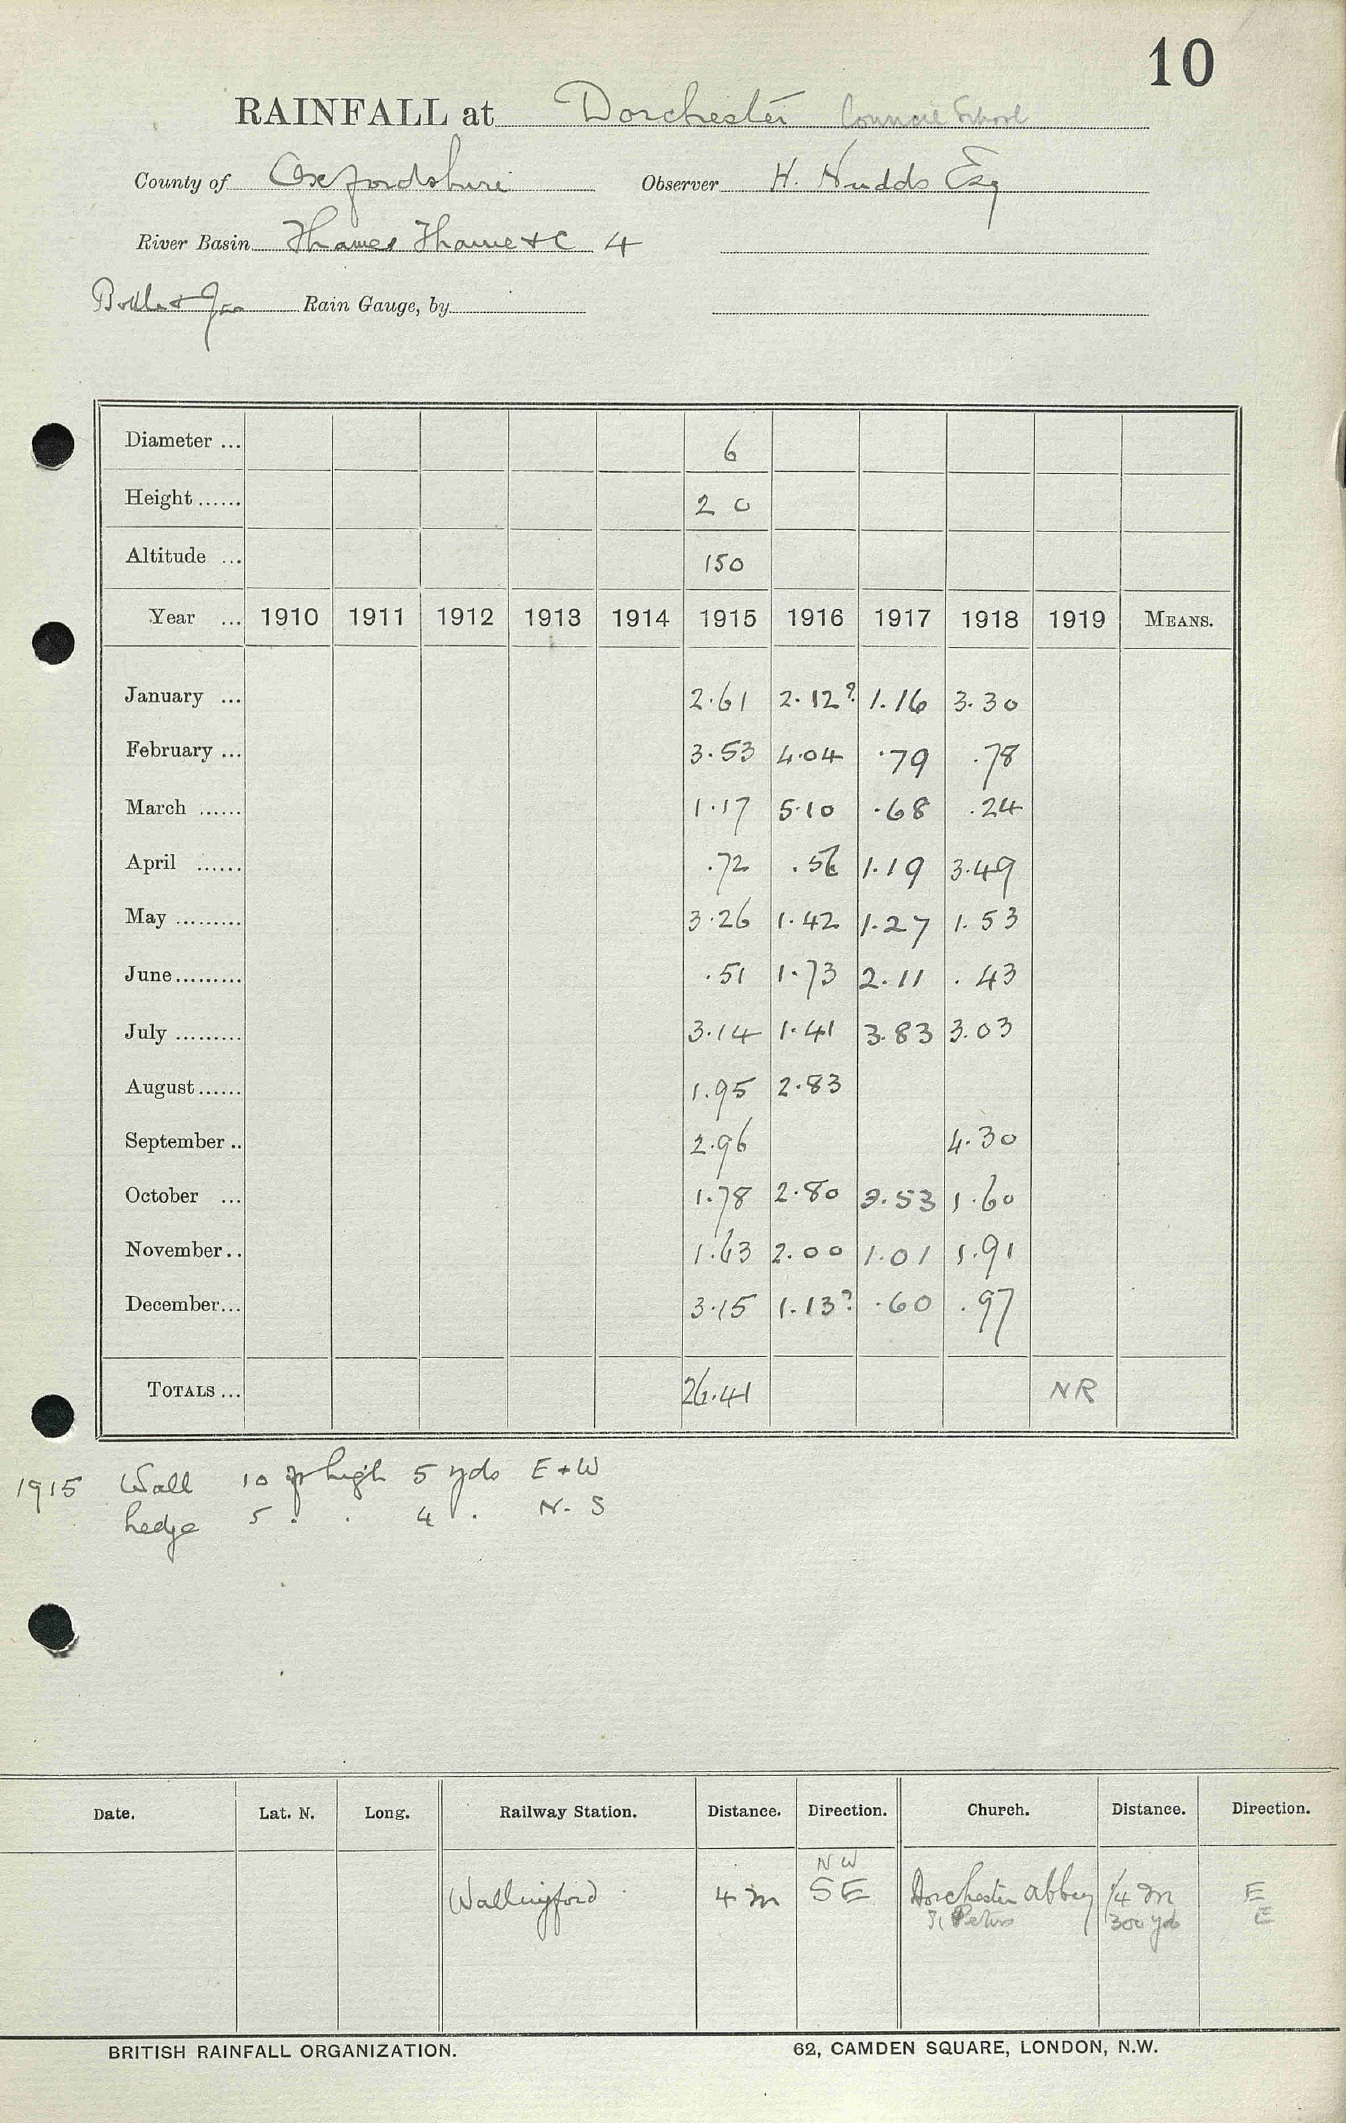 10
RAINFALL at Dorchester Council School
County of Oxfordshire Observer H. Hudds Esq
River Basin Thames Thame & C 4
Bottle & Jar Rain Gauge, by
Diameter ... 6
Height ...... 2 0
Altitude ... 150
Year ... 1910 1911 1912 1913 1914 1915 1916 1917 1918 1919 MEANS.
January ... 2.61 2.12? 1.16 3.30
February ... 3.53 4.04 .79 .78
March ...... 1.17 5.10 .68 .24
April ...... .72 1.19 3.49
May ......... 3.26 1.42 1.27 1.53
June ......... .51 1.73 2.11 .43
July ......... 3.14 1.41 3.83 3.03
August ...... 1.95 2.83
September .. 2.96 4.30
October ... 1.78 2.80 3.53 1.60
November .. 1.63 2.00 1.01 1.91
December ... 3.15 1.13? .60 .97
TOTALS ... 26.41 NR
1915 Wall 10 ft high 5 yds E + W
hedge 5 . . 4 . N. S
Date. Lat. N. Long. Railway Station. Distance. Direction. Church. Distance. Direction.
NW
Wallingford 4 m SE Dorchester Abbey 1/4 m E
St Peters 300 yds E
BRITISH RAINFALL ORGANIZATION. 62, CAMDEN SQUARE, LONDON, N.W.